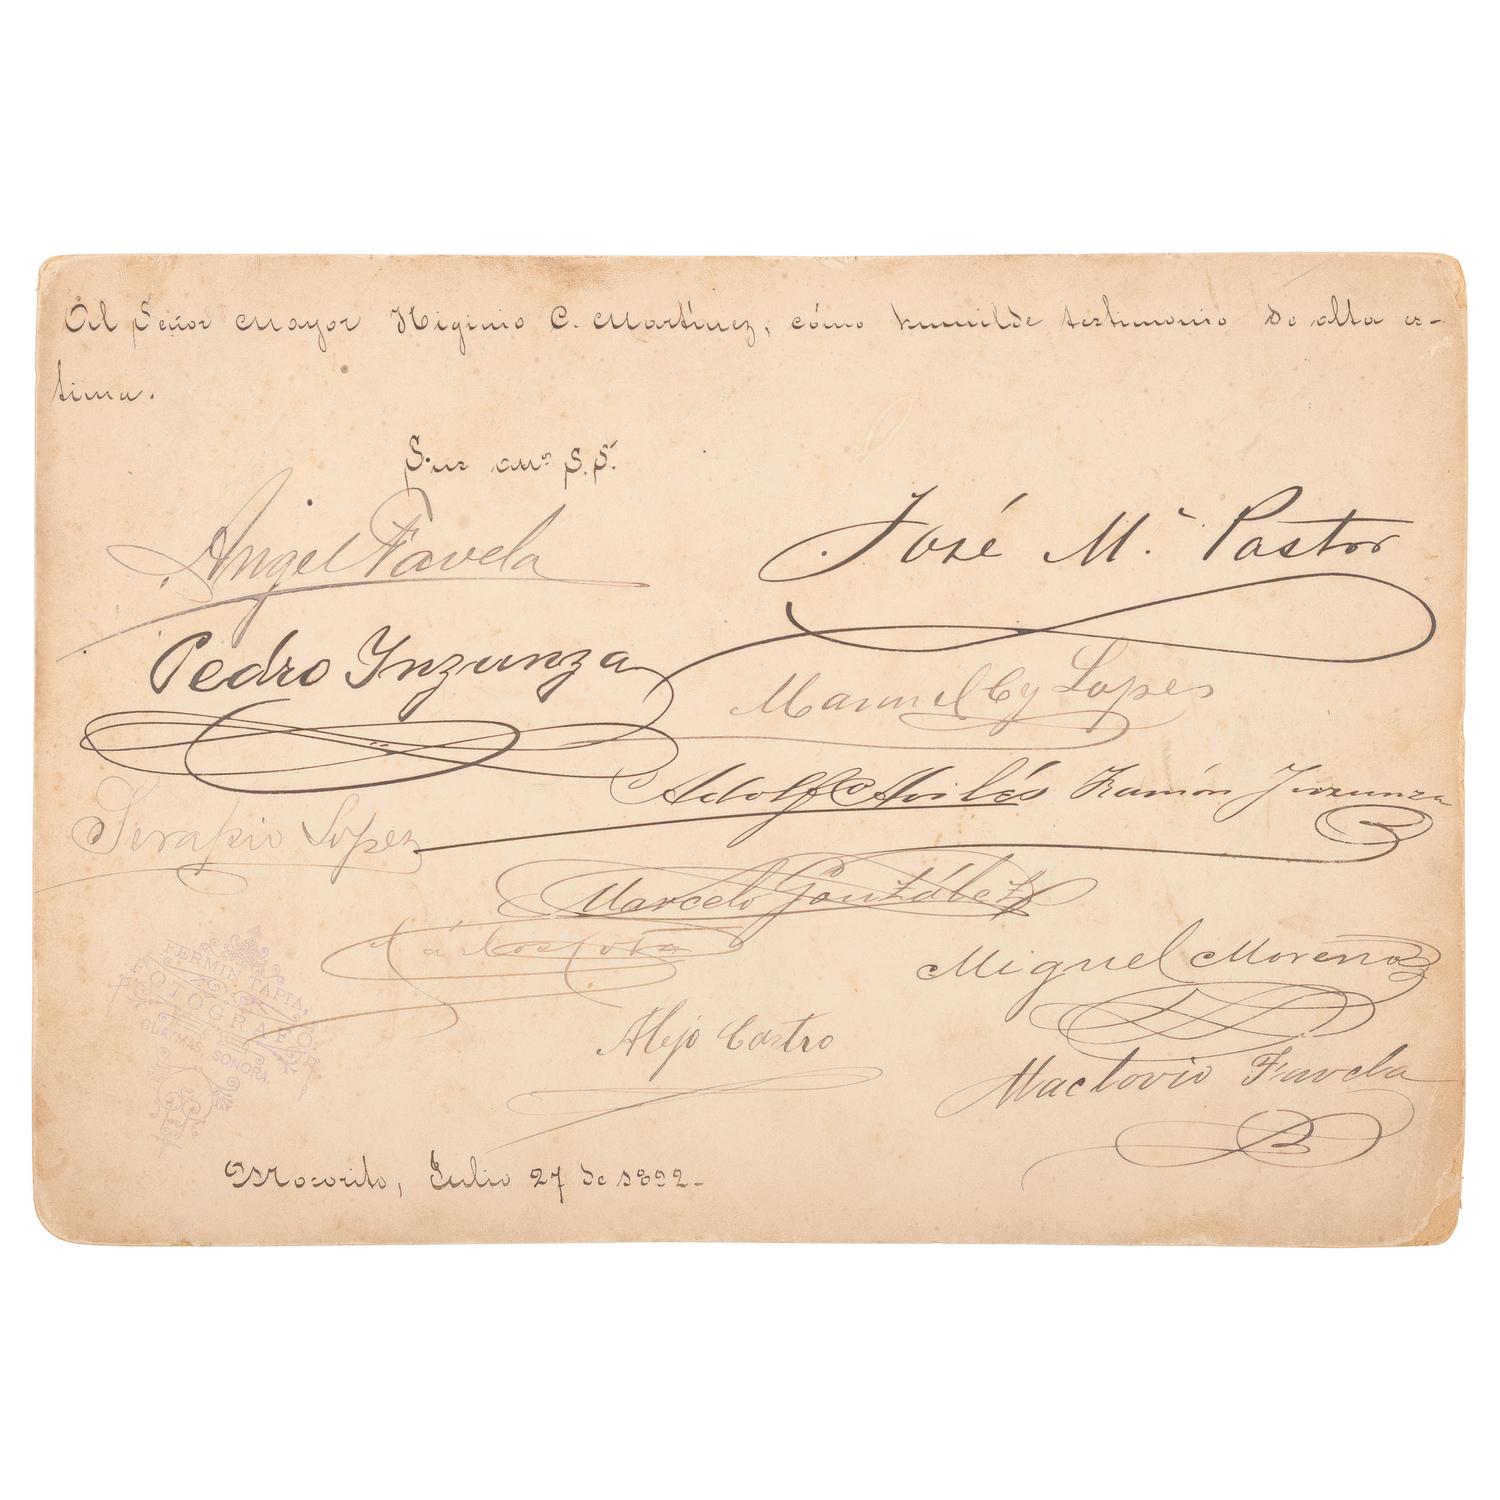 Al Señor Mayor Higinio C. Martínez, cómo humilde testimonio de alta es-
tima.
Sus am.os S.S.
Angel Favela
José M.a Pastor
Pedro Inzunza
Manuel Lopes
Adolfo Avilés
Ramón Inzunza
Serapio Lopez
Marcelo González
Miguel Moreno
FERMIN TAPIA,
FOTOGRAFO.
GUAYMAS, SONORA.
Alejo Castro
Maclovio Favela
Mocorito, Julio 27 de 1892.-